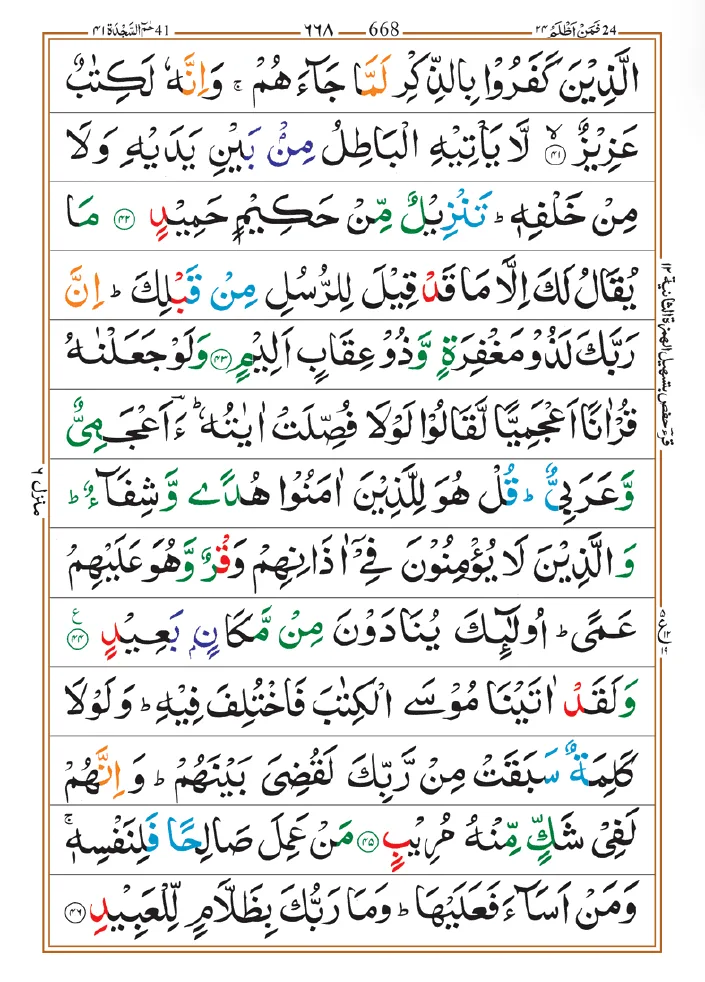 فَمَنْ اَظْلَمُ ٢٤ 24 668 ٦٦٨ حٰمٓ السَّجْدَة ٤١ 41
الَّذِيْنَ كَفَرُوْا بِالذِّكْرِ لَمَّا جَآءَهُمْ ۚ وَاِنَّهٗ لَكِتٰبٌ
عَزِيْزٌ ۙ﴿٤١﴾ لَّا يَاْتِيْهِ الْبَاطِلُ مِنْۢ بَيْنِ يَدَيْهِ وَلَا
مِنْ خَلْفِهٖ ؕ تَنْزِيْلٌ مِّنْ حَكِيْمٍ حَمِيْدٍ ﴿٤٢﴾ مَا
يُقَالُ لَكَ اِلَّا مَا قَدْ قِيْلَ لِلرُّسُلِ مِنْ قَبْلِكَ ؕ اِنَّ
رَبَّكَ لَذُوْ مَغْفِرَةٍ وَّذُوْ عِقَابٍ اَلِيْمٍ ﴿٤٣﴾ وَلَوْ جَعَلْنٰهُ
قُرْاٰنًا اَعْجَمِيًّا لَّقَالُوْا لَوْلَا فُصِّلَتْ اٰيٰتُهٗ ؕ ءَؔاَعْجَمِىٌّ
وَّعَرَبِىٌّ ؕ قُلْ هُوَ لِلَّذِيْنَ اٰمَنُوْا هُدًى وَّشِفَآءٌ ؕ
وَالَّذِيْنَ لَا يُؤْمِنُوْنَ فِىْۤ اٰذَانِهِمْ وَقْرٌ وَّهُوَ عَلَيْهِمْ
عَمًى ؕ اُولٰٓئِكَ يُنَادَوْنَ مِنْ مَّكَانٍۭ بَعِيْدٍ ﴿٤٤﴾ ع
وَلَقَدْ اٰتَيْنَا مُوْسَى الْكِتٰبَ فَاخْتُلِفَ فِيْهِ ؕ وَلَوْلَا
كَلِمَةٌ سَبَقَتْ مِنْ رَّبِّكَ لَقُضِىَ بَيْنَهُمْ ؕ وَاِنَّهُمْ
لَفِىْ شَكٍّ مِّنْهُ مُرِيْبٍ ﴿٤٥﴾ مَنْ عَمِلَ صَالِحًا فَلِنَفْسِهٖ ۚ
وَمَنْ اَسَآءَ فَعَلَيْهَا ؕ وَمَا رَبُّكَ بِظَلَّامٍ لِّلْعَبِيْدِ ﴿٤٦﴾
قرحفص بتسهيل الهمزة الثانية ١٢
منزل ٦